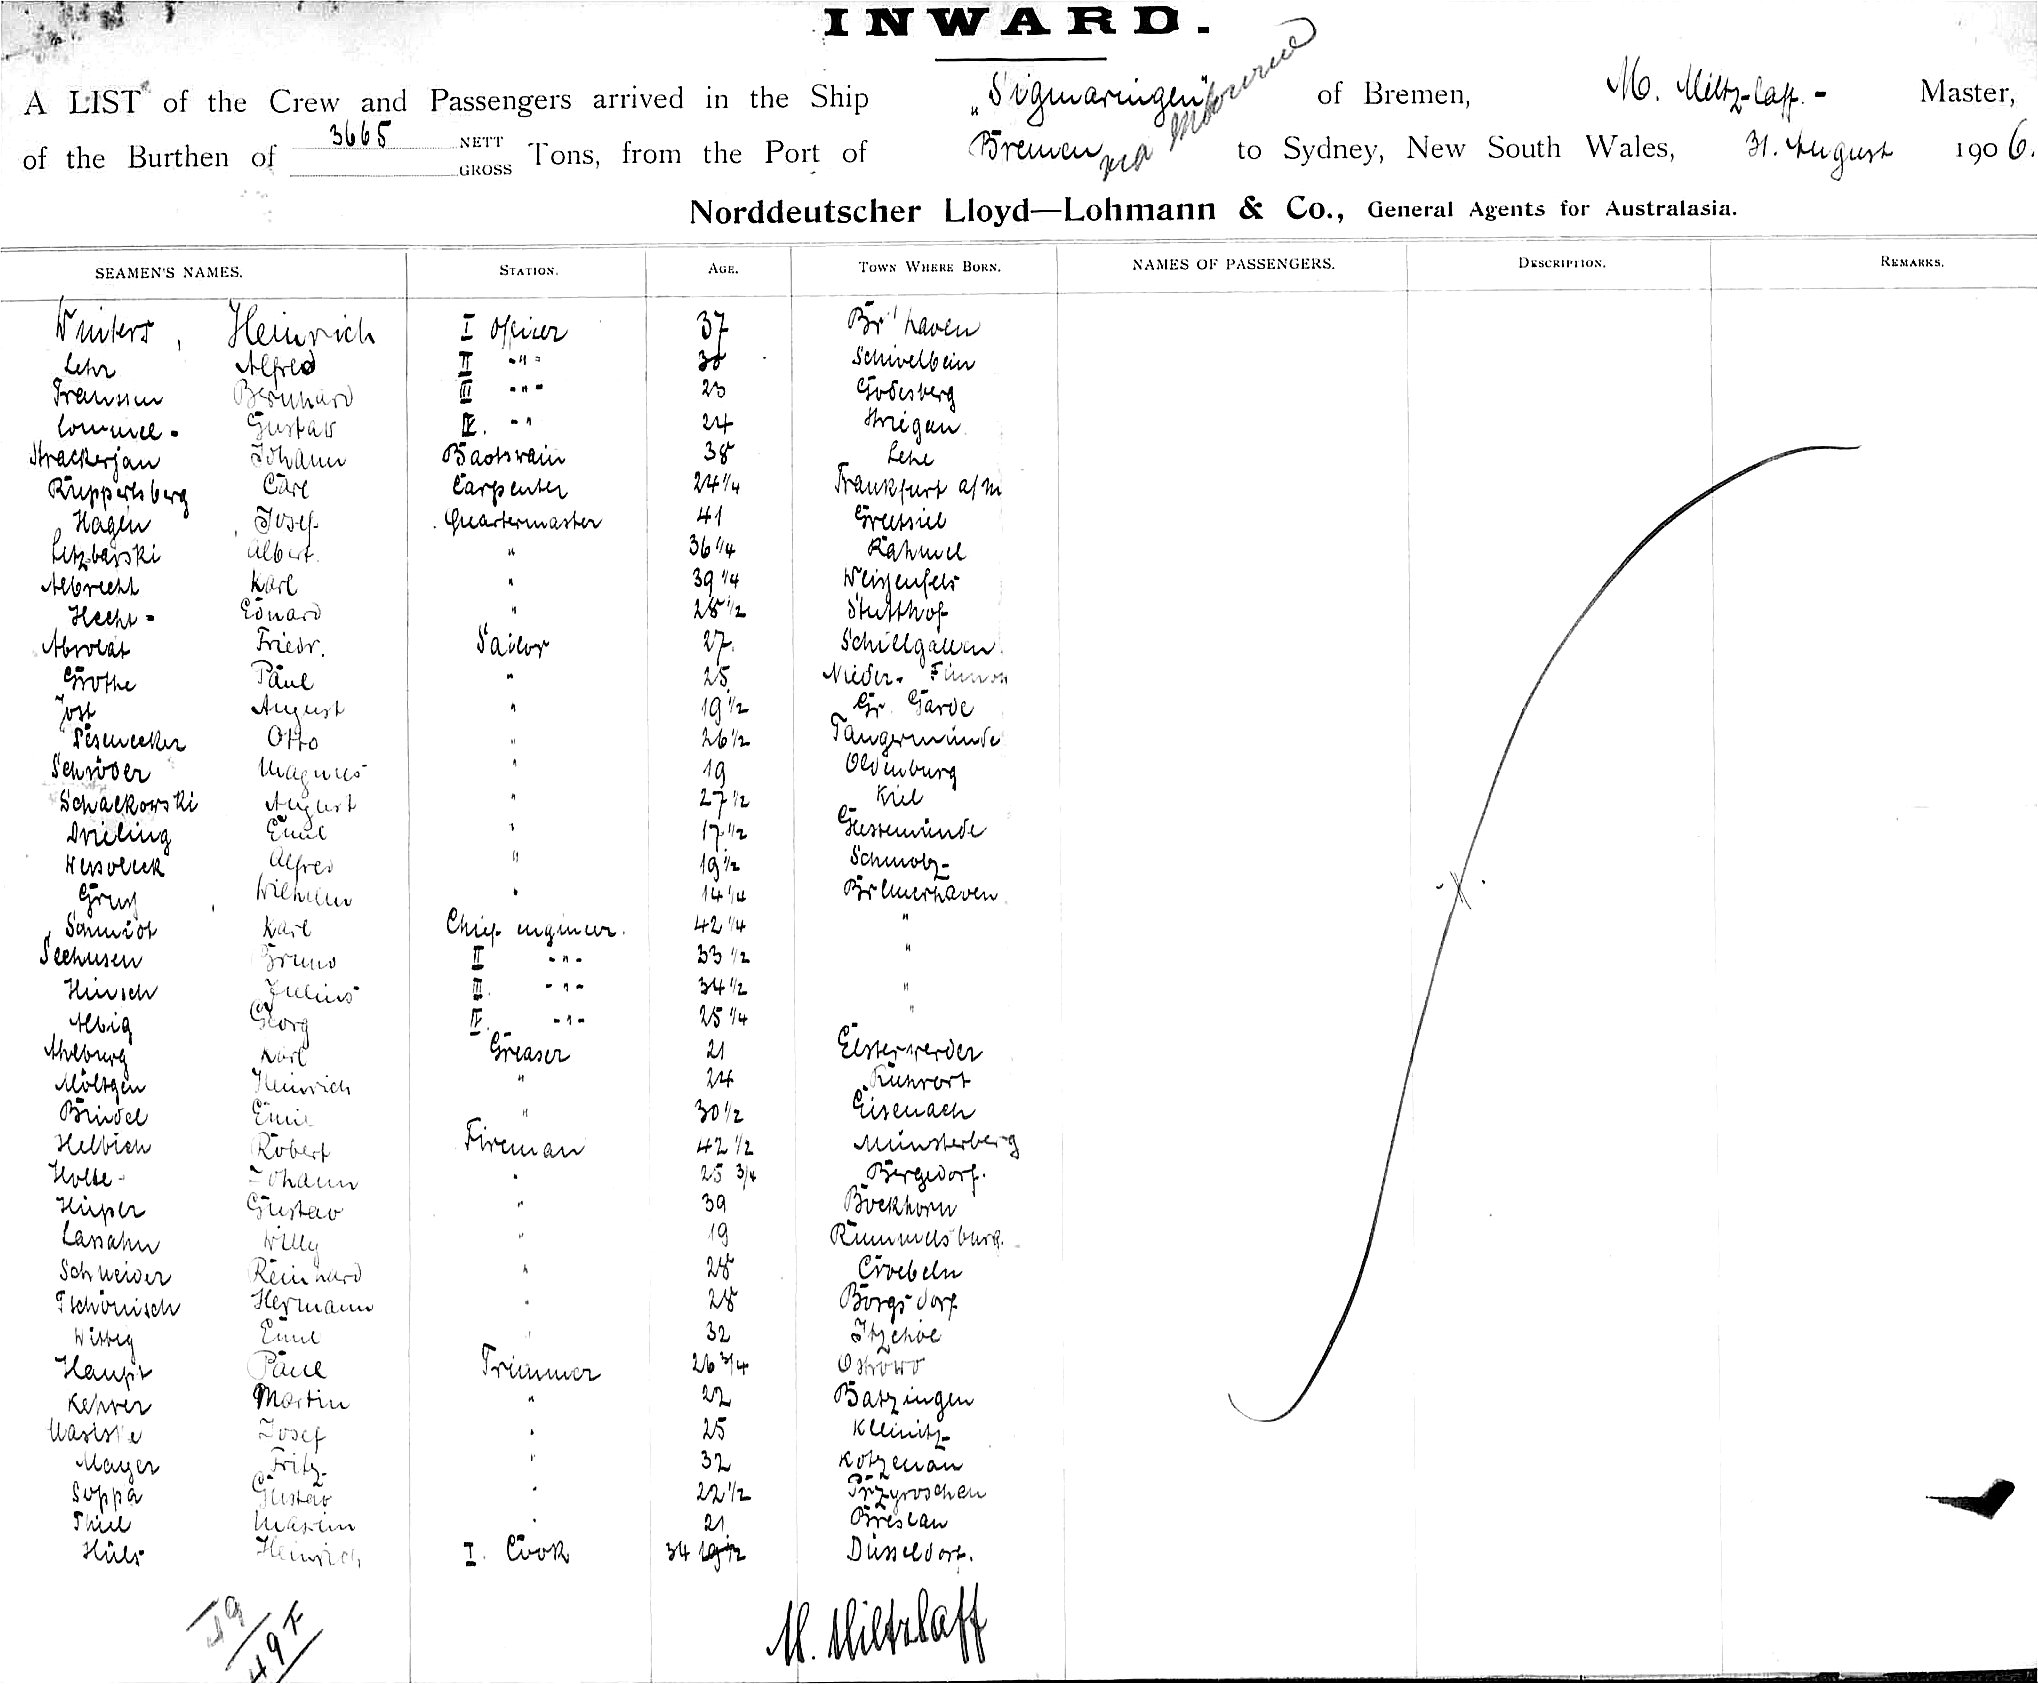 INWARD.
A LIST of the Crew and Passengers arrived in the Ship „Sigmaringen" of Bremen, M. Miltzlaff. - Master,
of the Burthen of 3665 NETT GROSS Tons, from the Port of Bremen via Melbourne to Sydney, New South Wales, 31. August 1906.
Norddeutscher Lloyd—Lohmann & Co., General Agents for Australasia.
SEAMEN'S NAMES. STATION. AGE. TOWN WHERE BORN. NAMES OF PASSENGERS. DESCRIPTION. REMARKS.
Winters, Heinrich I Officer 37 Br'haven
Lehr Alfred II -"- 30 Schivelbein
Franssen Bernhard III -"- 23 Godesberg
Gustav IV. -" 24 Striegau
Strackerjan Johann Baotswain 38 Lehe
Ruppertsberg Carl Carpenter 24 1/4 Frankfurt a/M
Hagen Josef Quartermaster 41 Greetsiel
Albert. " 36 1/4 Rahmel
Albrecht Karl " 39 1/4 Weissenfels
Hecht - Eduard " 28 1/2 Stutthof
Abrolat Friedr. Sailor 27. Schillgallen
Grothe Paul " 25 Nieder-Finnow
Jost August " 19 1/2 Gr. Garde
Otto " 26 1/2 Tangermünde
Schröder Magnus " 19 Oldenburg
Schalkowski August " 27 1/2 Kiel
Drieling Emil " 17 1/2 Geestemünde
Alfred " 19 1/2 Schmolz-
Wilhelm " 14 1/4 Bremerhaven
Schmidt Karl Chief engineer. 42 1/4 "
Seehusen Bruno II -"- 33 1/2 "
Hinsch Julius III. -"- 34 1/2 "
Albig Georg IV. -"- 25 1/4 "
Ahlburg Karl Greaser 21 Elsterwerder
Möltgen Heinrich " 24 Ruhrort
Brudel Emil " 30 1/2 Eisenach
Helbich Robert Fireman 42 1/2 Münsterberg
Holte - Johann " 25 3/4 Bergedorf.
Hüper Gustav " 39 Bockhorn
Lassahn Willy " 19 Rummelsburg.
Schneider Reinhard " 28 Croebeln
Tschönisch Hermann " 28 Borgsdorf
Wittig Emil " 32 Itzehoe
Haupt Paul Trimmer 26 3/4 Ostrowo
Kehrer Martin " 22 Batzingen
Josef " 25 Kleinitz
Mayer Fritz. " 32 Kotzenau
Soppa Gustav " 22 1/2 Przyroschen
Thiel " 21 Breslau
Hüls Heinrich I. Cook 34 19 1/2 Düsseldorf.
M. Miltzlaff
49 F